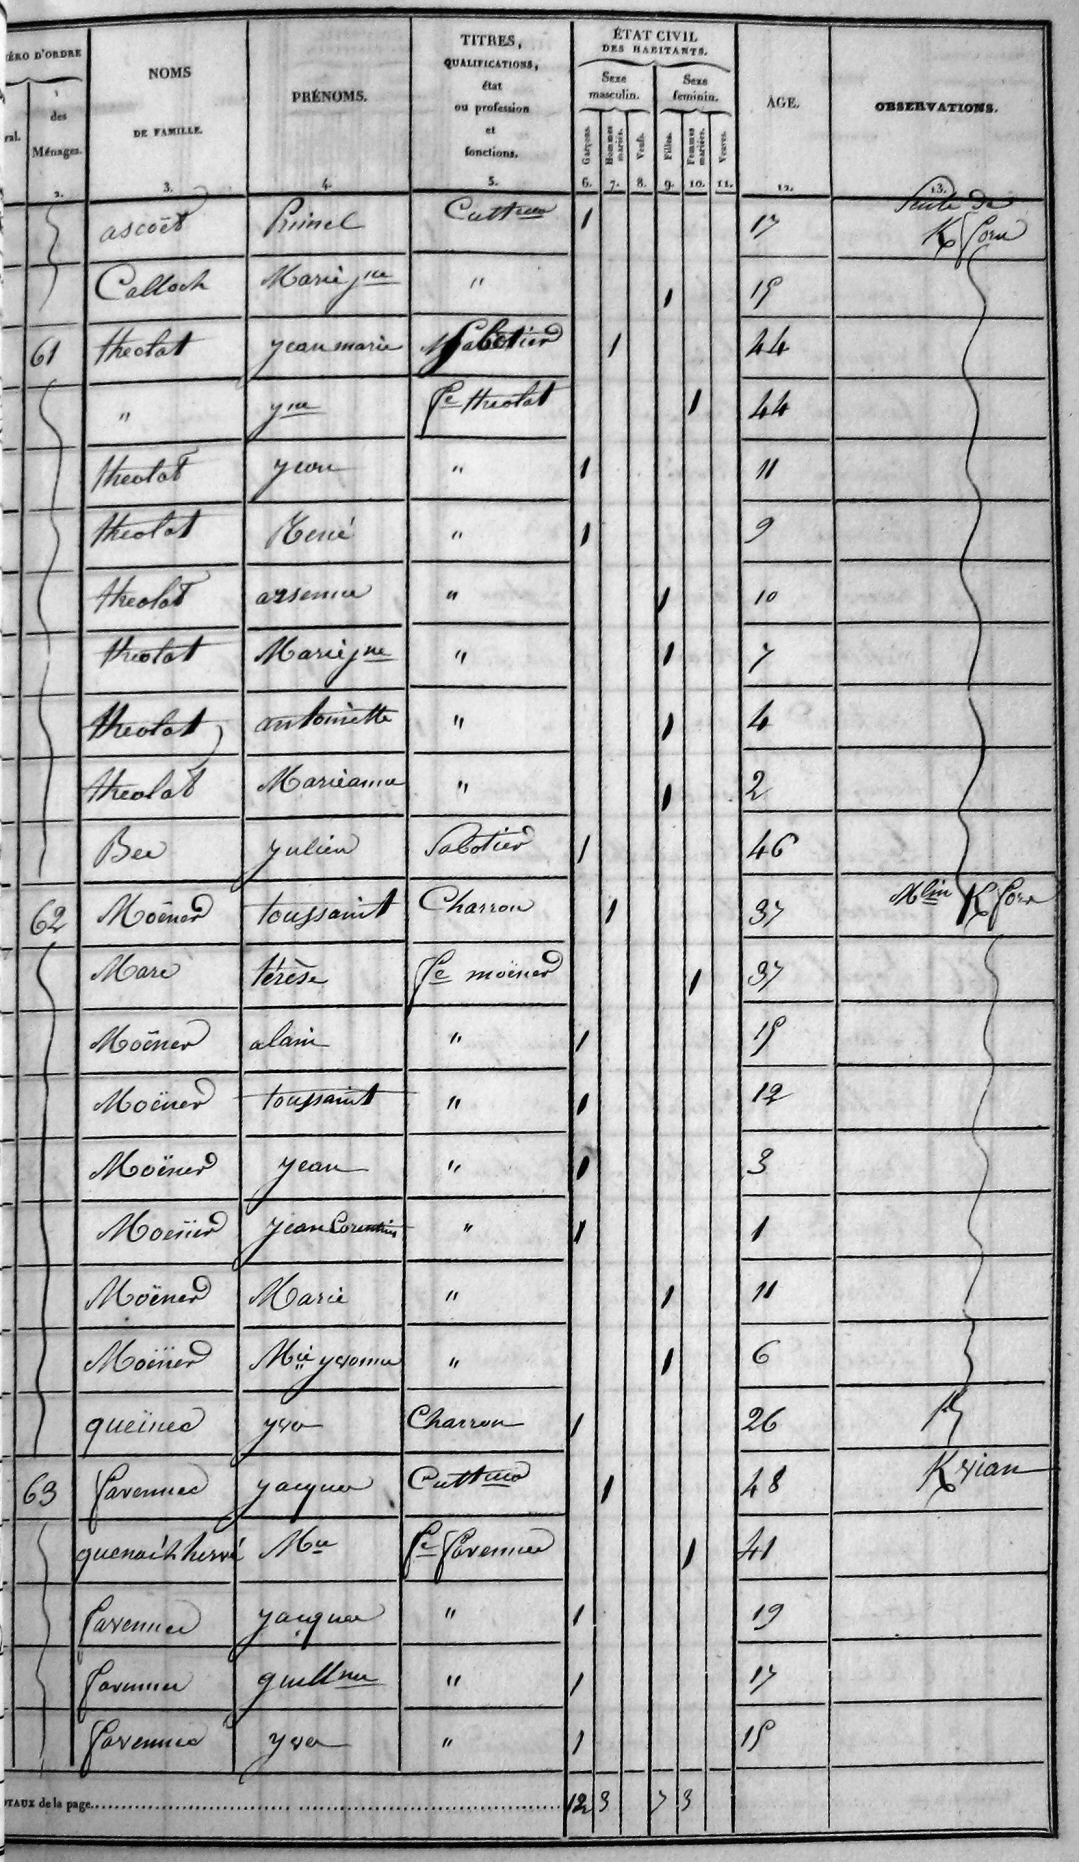 ÉTAT CIVIL
DES HABITANTS.
NUMÉRO D'ORDRE
des
Ménages.
NOMS
DE FAMILLE.
PRÉNOMS.
TITRES,
QUALIFICATIONS,
état
ou profession
et
fonctions.
Sexe masculin.
Sexe feminin.
Garçons.
Hommes mariés.
Veufs.
Filles.
Femmes mariées.
Veuves.
AGE.
OBSERVATIONS.
2. 3. 4. 5. 6. 7. 8. 9. 10. 11. 12. 13.
ascoët Primel 1 17 Suite de
Calloch Marie jne " 1 15
61 theolat yean marie Sabotier 1 44
" yne fe theolat 1 44
theolat yean " 1 11
theolat René " 1 9
theolat arsenne " 1 10
theolat Marie jne " 1 7
theolat antoinette " 1 4
theolat Marieanne " 1 2
Bec yulien Sabotier 1 46
62 Moëner toussaint Charron 1 37 Mlin
Marc térèse fe moëner 1 37
Moëner alain " 1 15
Moëner toussaint " 1 12
Moëner yean " 1 3
Moëner yean Corentin " 1 1
Moëner Marie " 1 11
Moëner Mie yvonne " 1 6
queïnec yves Charron 1 26
63 favennec yacques 1 48 Kvian
quenaich hervé Mie fe favennec 1 41
favennec yacques " 1 19
favennec guillme " 1 17
favennec yves " 1 15
TOTAUX de la page 12 3 7 3